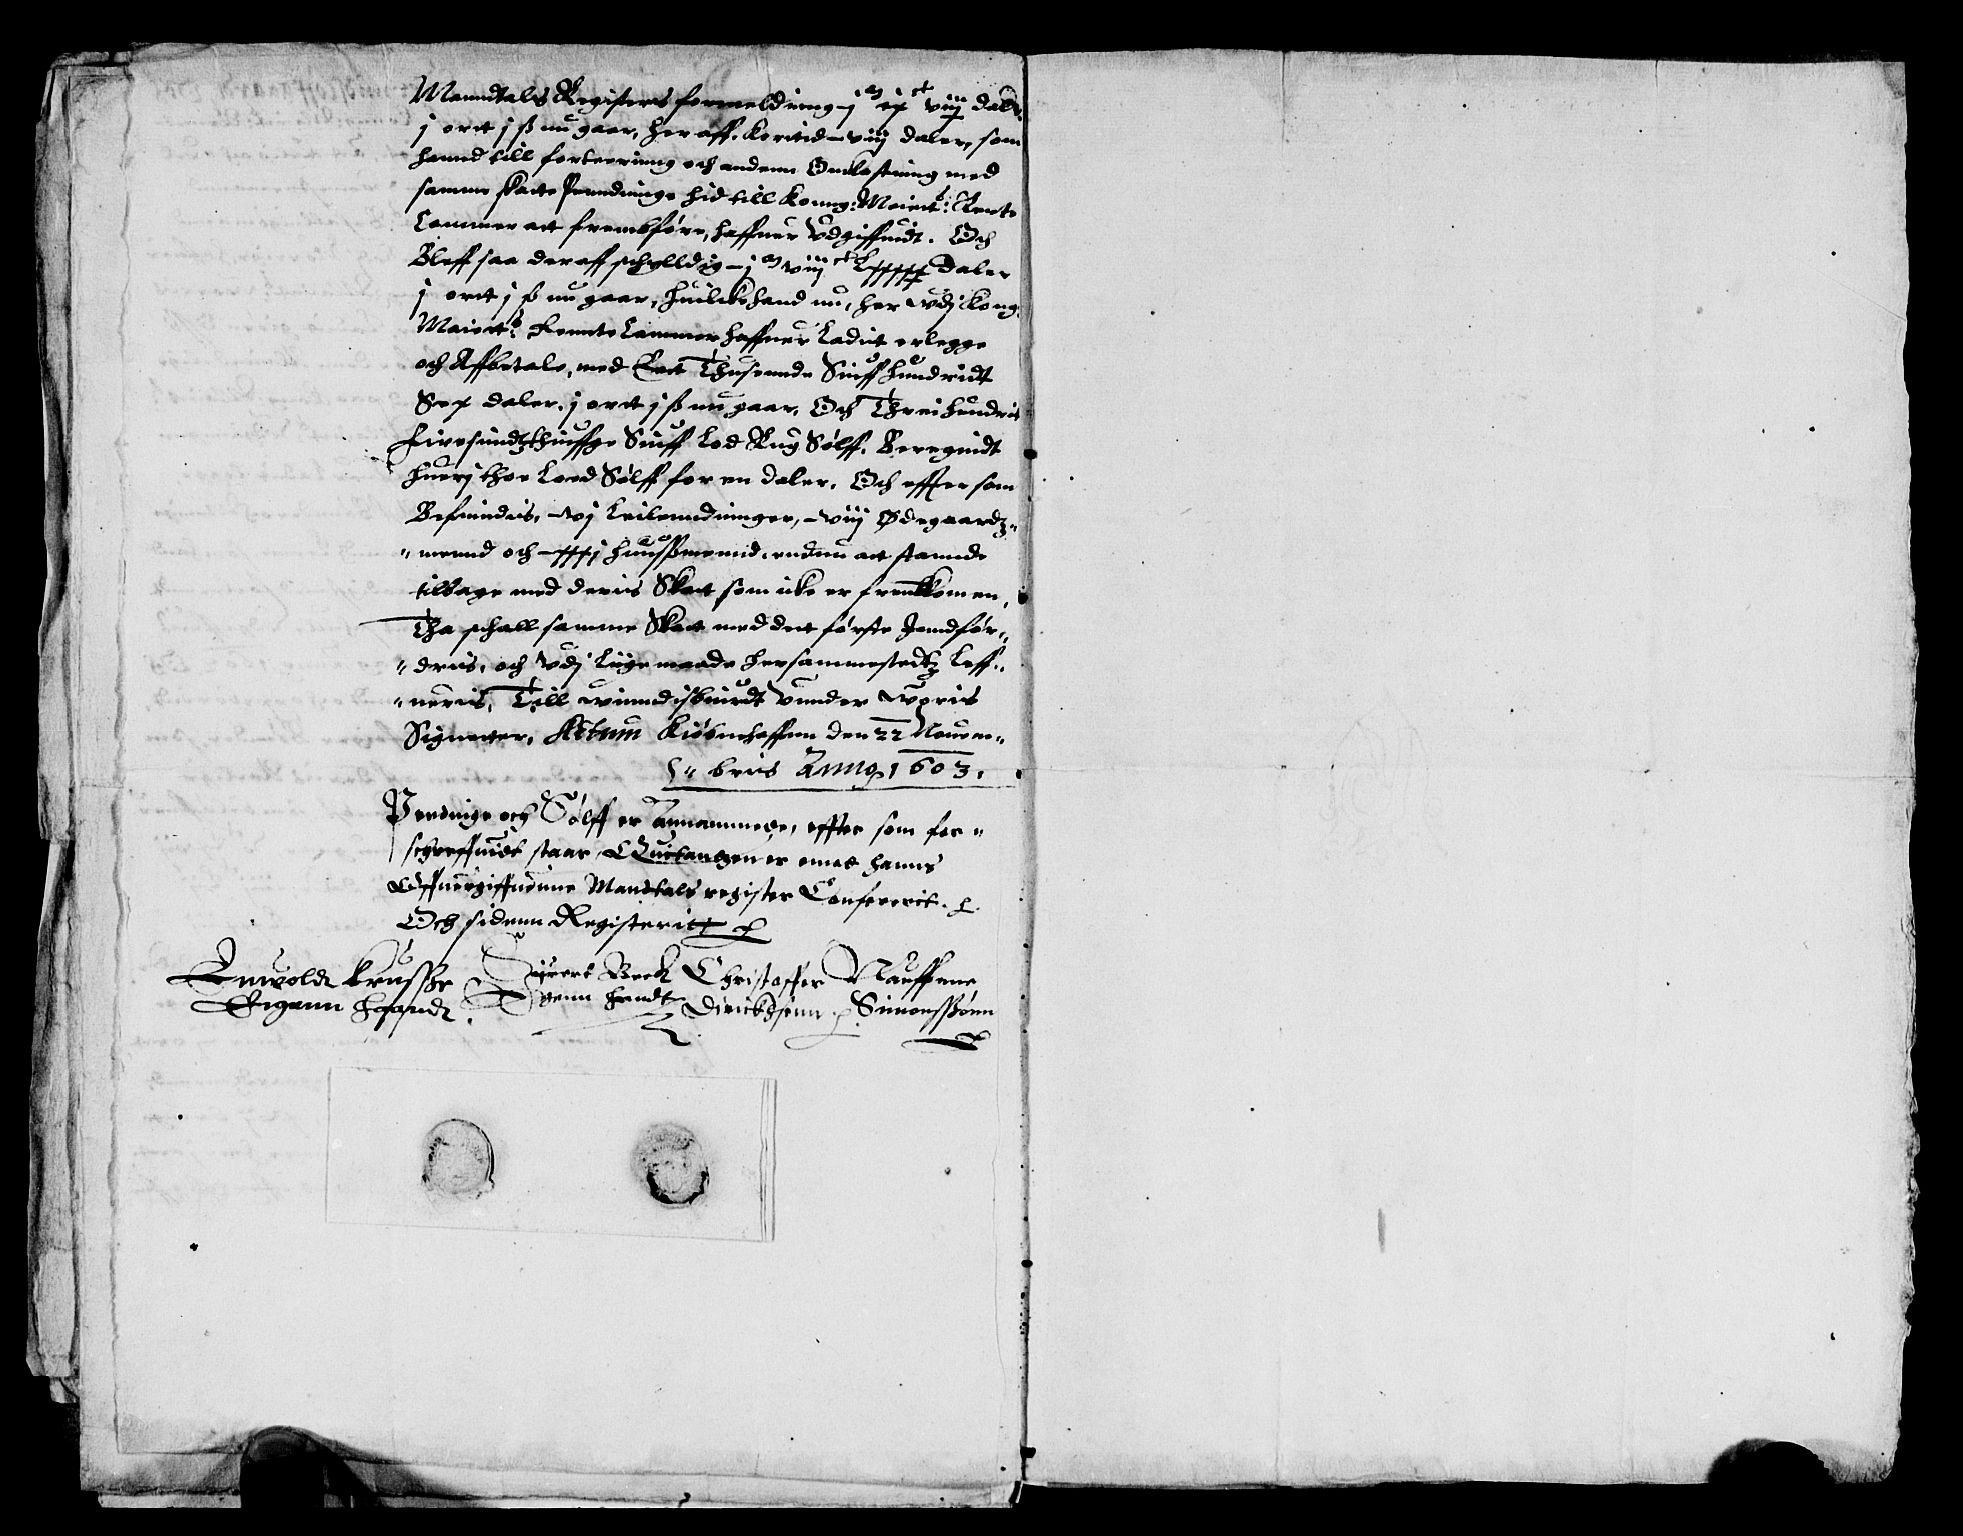 Manndtals Registers formelding j m ix ct viij daler
j ort j ß nu gaar, her aff. kortid viij daler, som
hannd till forteering och andenn Omkostning med
samme skatte Penndinge hid till Konng: Maiett: Rente
Cammer att frembføre, haffuer Vdgiffuedt. Och
Bleff saa deraff schylldig j m viij ct Lxxxxx daler
j ort j ß nu gaar, huilcke hand nu, her vdj Kong:
Maiett: Rennte Cammer haffuer Ladit erlegge
och Affbetale, med Eett Thusennde Siuff hundridt
Sex daler. j ortt j ß nu gaar, Och Threi hundrid
Firesindtzthiuffge Siuff Lod Rug Sølff. Beregnidt
huerj thoe Lood Sølff for en daler. Och effter som
Befindis, vj Leilenndinger, viij Ødegaardz-
mennd och xxxj huußmennd. endnu att stannde
tilbage med deris Skatt som icke er fremkomen,
Tha schall samme Skatt med det første Indfør-
deris, och Vdj lige maade hersammestedtz Leff-
ueris, Till vinndisbiurdt Vnnder voris
Signetter, Actum Kiøbnehaffnn den 22 Nouem-
bris Anno 1603.
Pendinge och Sølff er Annammede, effter som for-
schreffuidt staar Quitantzen er emod hanns
Offuergiffuenne Mandtals register Confererit.
Och sidenn Registeritt
Enwoldt Krusse Siuert Beck Christoffer Mauffenne
Eigenn haandt Egenn handt Dirickhsenn Simenssønn